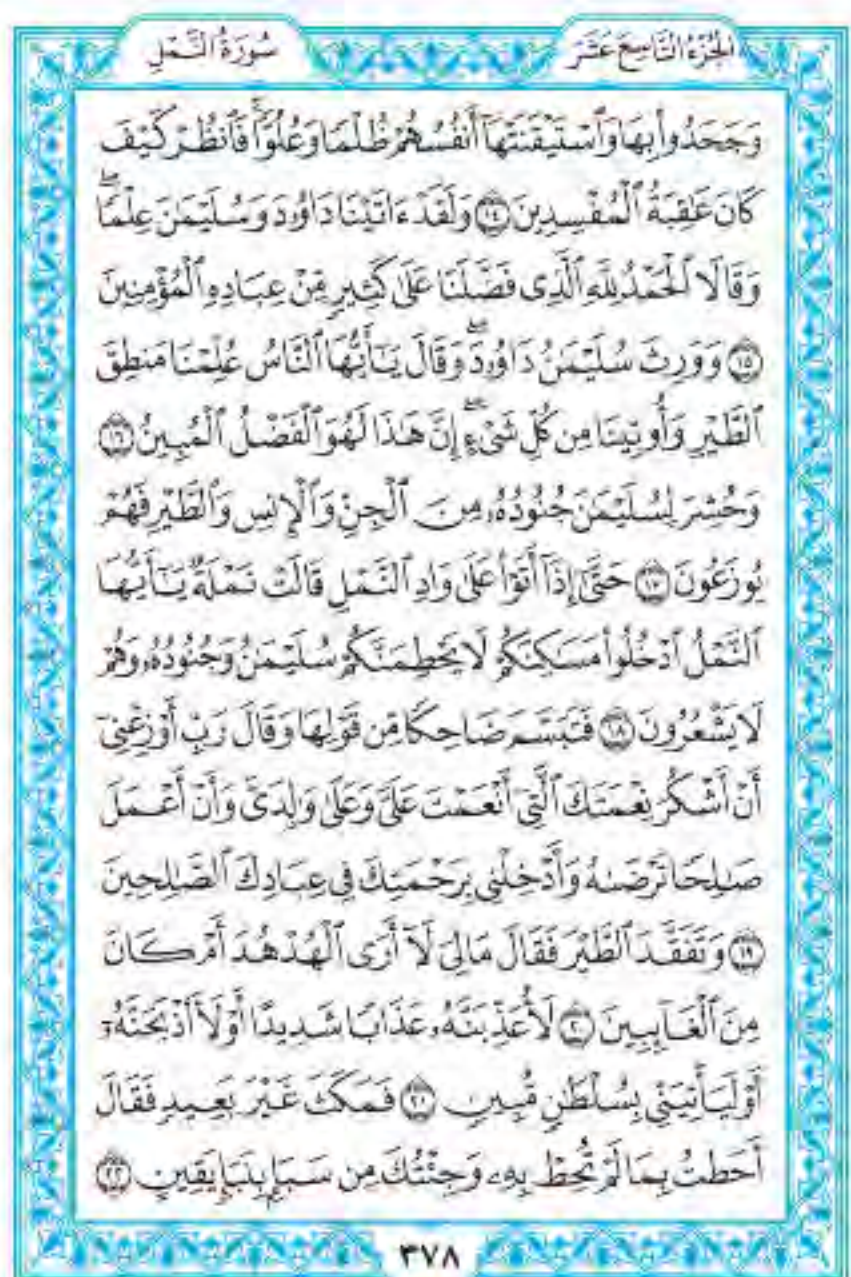 الجُزْءُ التَّاسِعَ عَشَرَ
سُورَةُ النَّمْلِ
وَجَحَدُوا۟ بِهَا وَٱسْتَيْقَنَتْهَآ أَنفُسُهُمْ ظُلْمًا وَعُلُوًّاۚ فَٱنظُرْ كَيْفَ
كَانَ عَٰقِبَةُ ٱلْمُفْسِدِينَ ١٤ وَلَقَدْ ءَاتَيْنَا دَاوُۥدَ وَسُلَيْمَٰنَ عِلْمًاۖ
وَقَالَا ٱلْحَمْدُ لِلَّهِ ٱلَّذِى فَضَّلَنَا عَلَىٰ كَثِيرٍ مِّنْ عِبَادِهِ ٱلْمُؤْمِنِينَ
١٥ وَوَرِثَ سُلَيْمَٰنُ دَاوُۥدَۖ وَقَالَ يَٰٓأَيُّهَا ٱلنَّاسُ عُلِّمْنَا مَنطِقَ
ٱلطَّيْرِ وَأُوتِينَا مِن كُلِّ شَىْءٍۖ إِنَّ هَٰذَا لَهُوَ ٱلْفَضْلُ ٱلْمُبِينُ ١٦
وَحُشِرَ لِسُلَيْمَٰنَ جُنُودُهُۥ مِنَ ٱلْجِنِّ وَٱلْإِنسِ وَٱلطَّيْرِ فَهُمْ
يُوزَعُونَ ١٧ حَتَّىٰٓ إِذَآ أَتَوْا۟ عَلَىٰ وَادِ ٱلنَّمْلِ قَالَتْ نَمْلَةٌ يَٰٓأَيُّهَا
ٱلنَّمْلُ ٱدْخُلُوا۟ مَسَٰكِنَكُمْ لَا يَحْطِمَنَّكُمْ سُلَيْمَٰنُ وَجُنُودُهُۥ وَهُمْ
لَا يَشْعُرُونَ ١٨ فَتَبَسَّمَ ضَاحِكًا مِّن قَوْلِهَا وَقَالَ رَبِّ أَوْزِعْنِىٓ
أَنْ أَشْكُرَ نِعْمَتَكَ ٱلَّتِىٓ أَنْعَمْتَ عَلَىَّ وَعَلَىٰ وَٰلِدَىَّ وَأَنْ أَعْمَلَ
صَٰلِحًا تَرْضَىٰهُ وَأَدْخِلْنِى بِرَحْمَتِكَ فِى عِبَادِكَ ٱلصَّٰلِحِينَ
١٩ وَتَفَقَّدَ ٱلطَّيْرَ فَقَالَ مَالِىَ لَآ أَرَى ٱلْهُدْهُدَ أَمْ كَانَ
مِنَ ٱلْغَآئِبِينَ ٢٠ لَأُعَذِّبَنَّهُۥ عَذَابًا شَدِيدًا أَوْ لَأَا۟ذْبَحَنَّهُۥٓ
أَوْ لَيَأْتِيَنِّى بِسُلْطَٰنٍ مُّبِينٍ ٢١ فَمَكَثَ غَيْرَ بَعِيدٍ فَقَالَ
أَحَطتُ بِمَا لَمْ تُحِطْ بِهِۦ وَجِئْتُكَ مِن سَبَإٍۭ بِنَبَإٍ يَقِينٍ ٢٢
٣٧٨